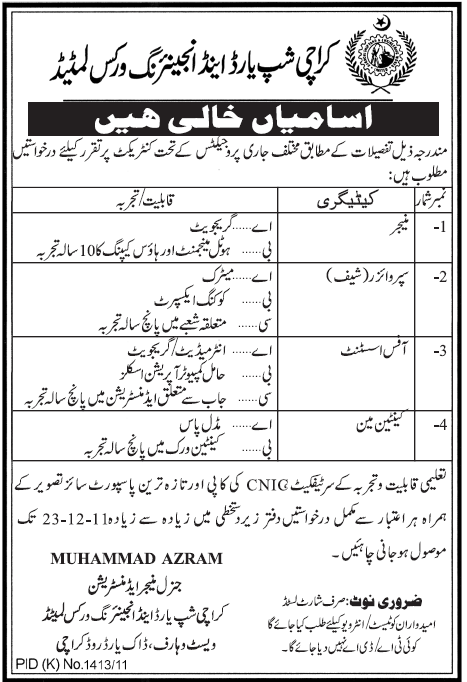 کراچی شپ یارڈ اینڈ انجینئرنگ ورکس لمٹیڈ
اسامیاں خالی ہیں
مندرجہ ذیل تفصیلات کے مطابق مختلف جاری پروجیکٹس کے تحت کنٹریکٹ پر تقرر کیلئے درخواستیں
مطلوب ہیں:
نمبر شمار کیٹیگری قابلیت/تجربہ
1- منیجر اے...... گریجویٹ
بی...... ہوٹل مینجمنٹ اور ہاؤس کیپنگ کا 10 سالہ تجربہ
2- سپروائزر (شیف) اے...... میٹرک
بی...... کوکنگ ایکسپرٹ
سی...... متعلقہ شعبے میں پانچ سالہ تجربہ
3- آفس اسسٹنٹ اے...... انٹرمیڈیٹ/گریجویٹ
بی...... حامل کمپیوٹر آپریشن اسکلز
سی...... جاب سے متعلق ایڈمنسٹریشن میں پانچ سالہ تجربہ
4- کینٹین مین اے...... مڈل پاس
بی...... کینٹین ورک میں پانچ سالہ تجربہ
تعلیمی قابلیت و تجربہ کے سرٹیفکیٹ CNIC کی کاپی اور تازہ ترین پاسپورٹ سائز تصویر کے
ہمراہ ہر اعتبار سے مکمل درخواستیں دفتر زیر دستخطی میں زیادہ سے زیادہ 23-12-11 تک
موصول ہو جانی چاہئیں۔
MUHAMMAD AZRAM
جنرل منیجر ایڈمنسٹریشن
کراچی شپ یارڈ اینڈ انجینئرنگ ورکس لمٹیڈ
ویسٹ وہارف، ڈاک یارڈ روڈ کراچی
ضروری نوٹ: صرف شارٹ لسٹڈ
امیدواران کو ٹیسٹ/انٹرویو کیلئے طلب کیا جائے گا
کوئی ٹی اے/ڈی اے نہیں دیا جائے گا۔
PID (K) No.1413/11